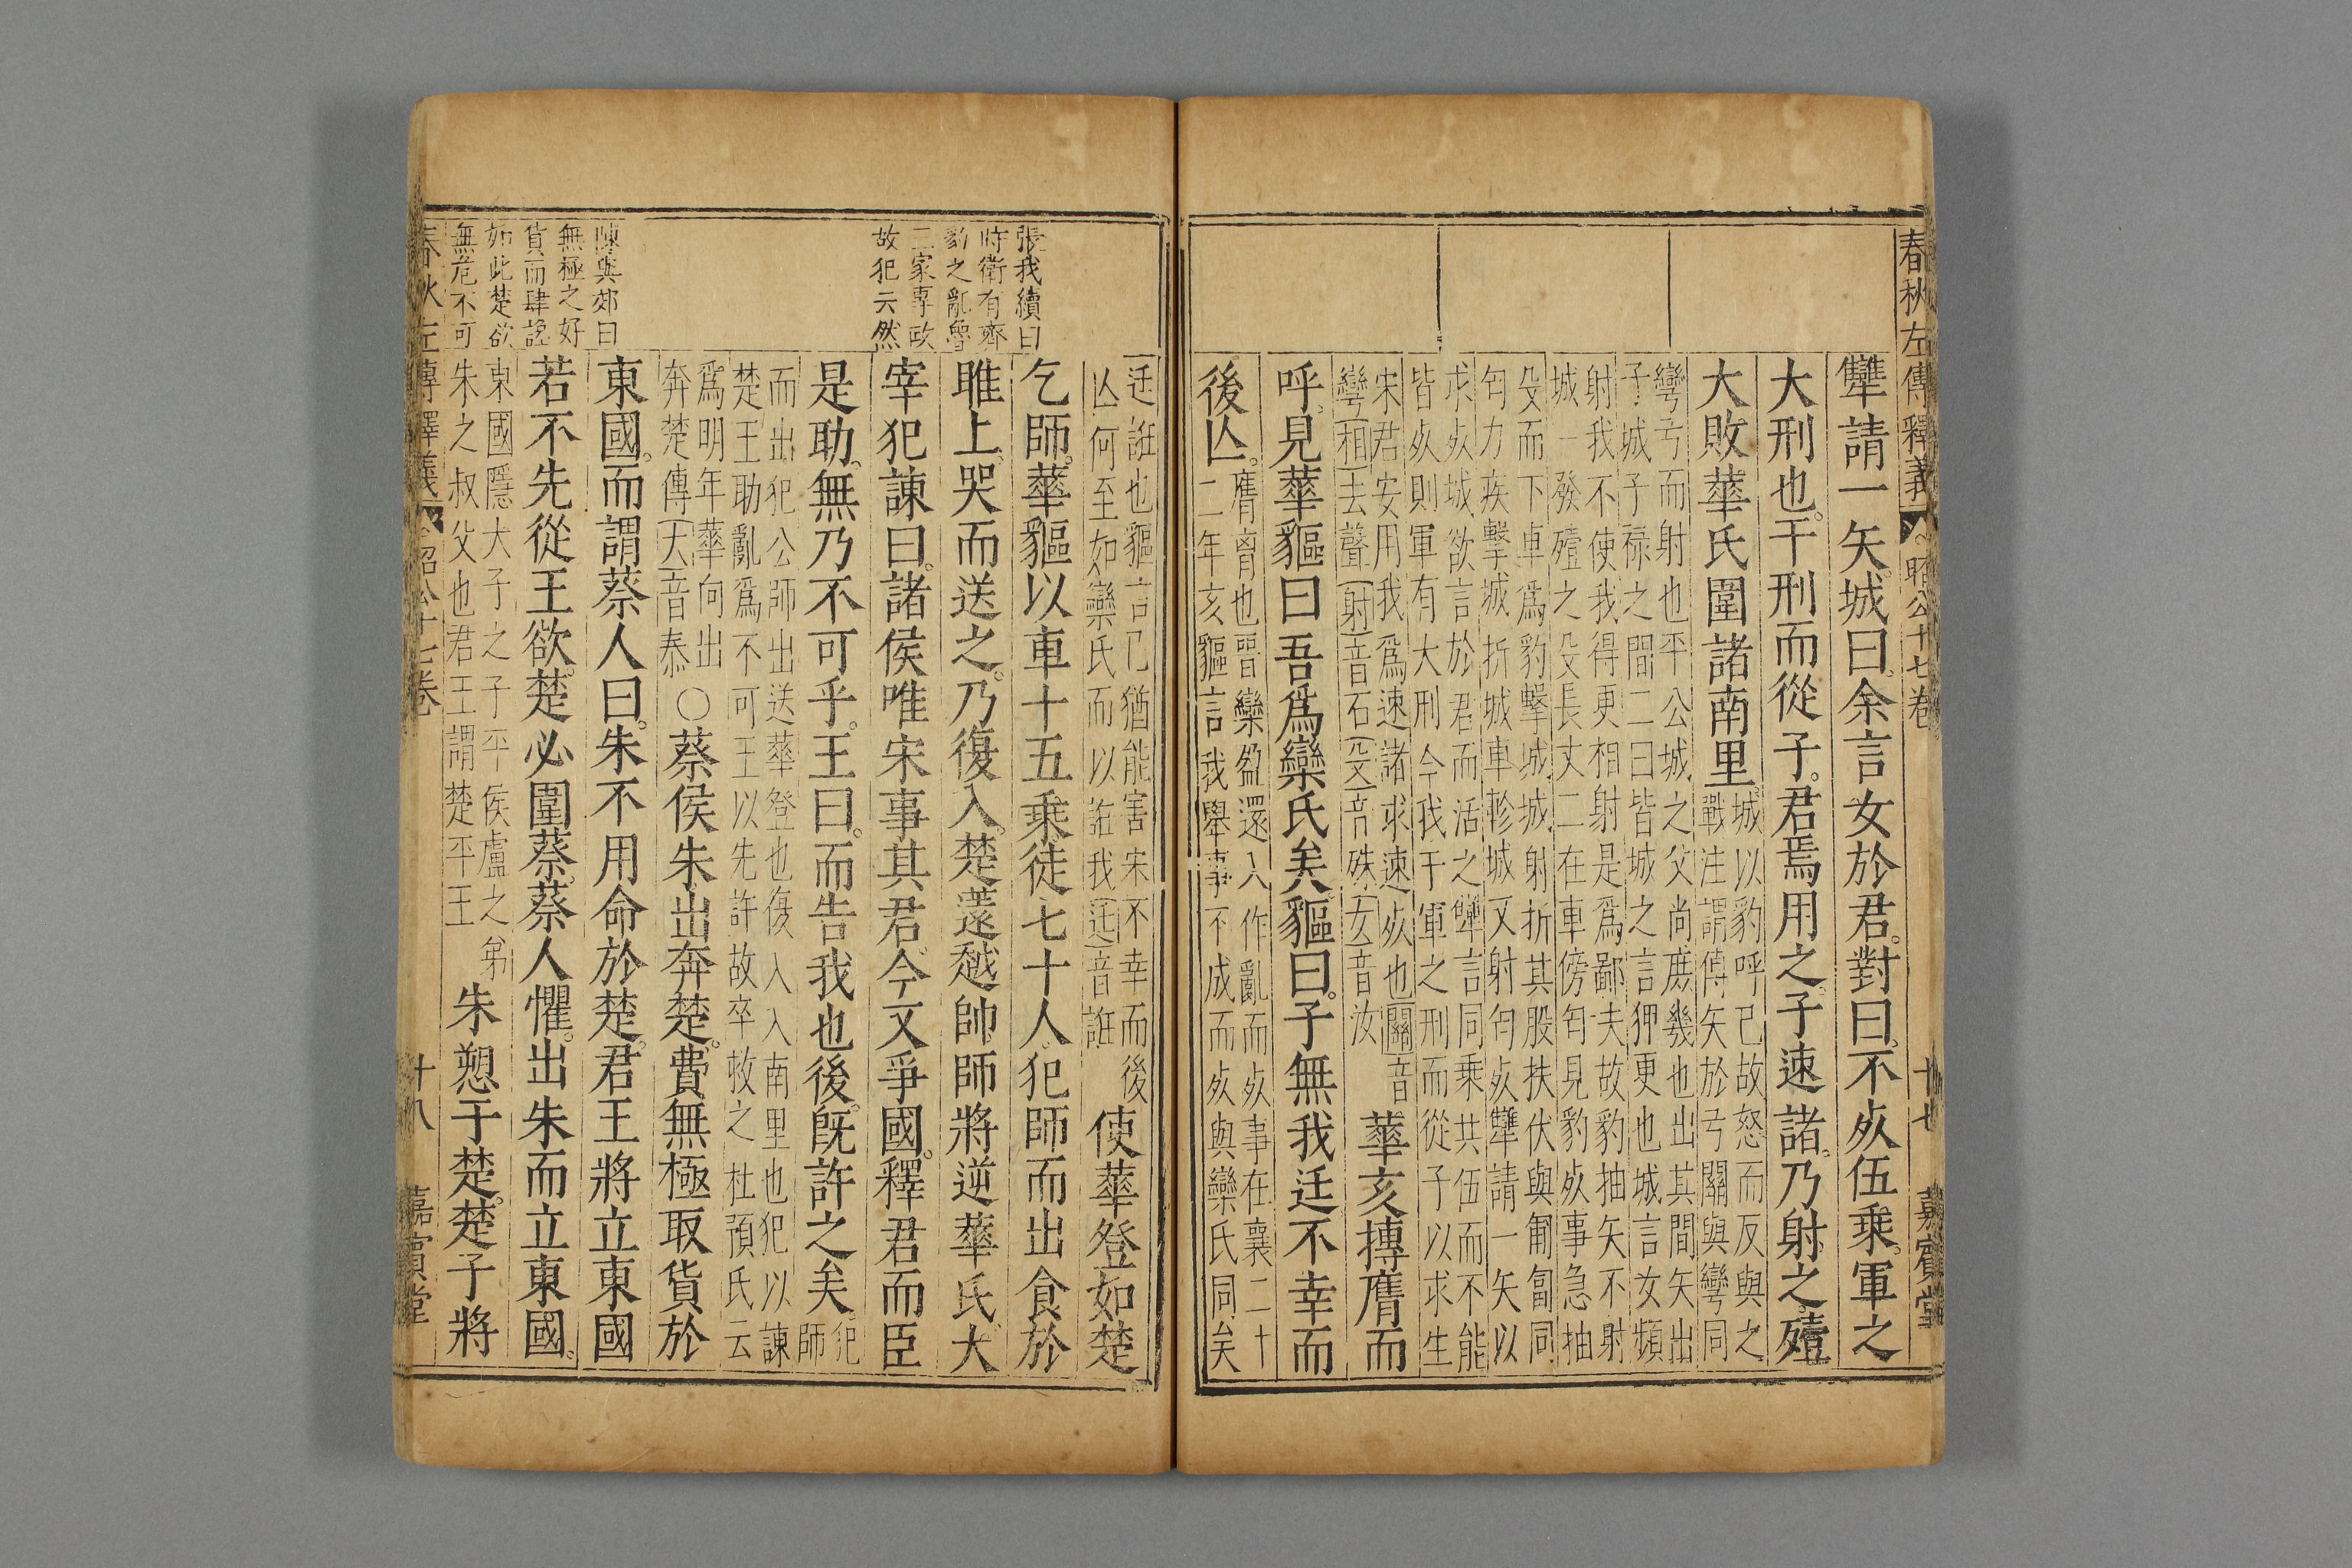 春秋左傳釋義 昭公十七卷 十七 嘉賓堂
犫請一矢城曰余言女於君對曰不歺伍乘軍之
大刑也干刑而從子君焉用之子速諸乃射之殪
大敗華氏圍諸南里
城以豹呼已故怒而反與之
戰注謂傅矢於弓關與彎同
彎弓而射也平公城之父尚庶幾也出其間矢出
子城子祿之間二曰皆城之言狎更也城言女頻
射我不使我得更相射是爲鄙夫故豹抽矢不射
城一發殪之殳長丈二在車傍匄見豹死事急抽
殳而下車爲豹擊城城射折其股扶伏與匍匐同
匄力疾擊城折城車軫城又射匄死犫請一矢以
求死城欲言於君而活之犫言同乘共伍而不能
皆死則軍有大刑今我干軍之刑而從子以求生
宋君安用我爲速諸求速死也關音
彎相去聲射音石殳音殊女音汝
華亥搏膺而
呼見華貙曰吾爲欒氏矣貙曰子無我迋不幸而
後亾
膺育也晋欒盈還入作亂而死事在襄二十
二年亥貙言我舉事不成而死與欒氏同矣
張我續曰
時衛有齊
豹之亂魯
三家專政
故犯云然
陳與郊曰
無極之好
貨而肆讒
如此楚欲
無危不可
迋誑也貙言己猶能害宋不幸而後
亾何至如欒氏而以誑我迋音誑
使華登如楚
乞師華貙以車十五乘徒七十人犯師而出食於
睢上哭而送之乃復入楚薳越帥師將逆華氏大
宰犯諫曰諸侯唯宋事其君今又爭國釋君而臣
是助無乃不可乎王曰而告我也後旣許之矣
犯
師
而出犯公師出送華登也復入入南里也犯以諫
楚王助亂爲不可王以先許故卒救之杜預氏云
爲明年華向出
奔楚傳大音泰
○蔡侯朱出奔楚費無極取貨於
東國而謂蔡人曰朱不用命於楚君王將立東國
若不先從王欲楚必圍蔡蔡人懼出朱而立東國
東國隱大子之子平侯廬之弟
朱之叔父也君王謂楚平王
朱愬于楚楚子將
春秋左傳釋義 昭公十七卷 十八 嘉賓堂